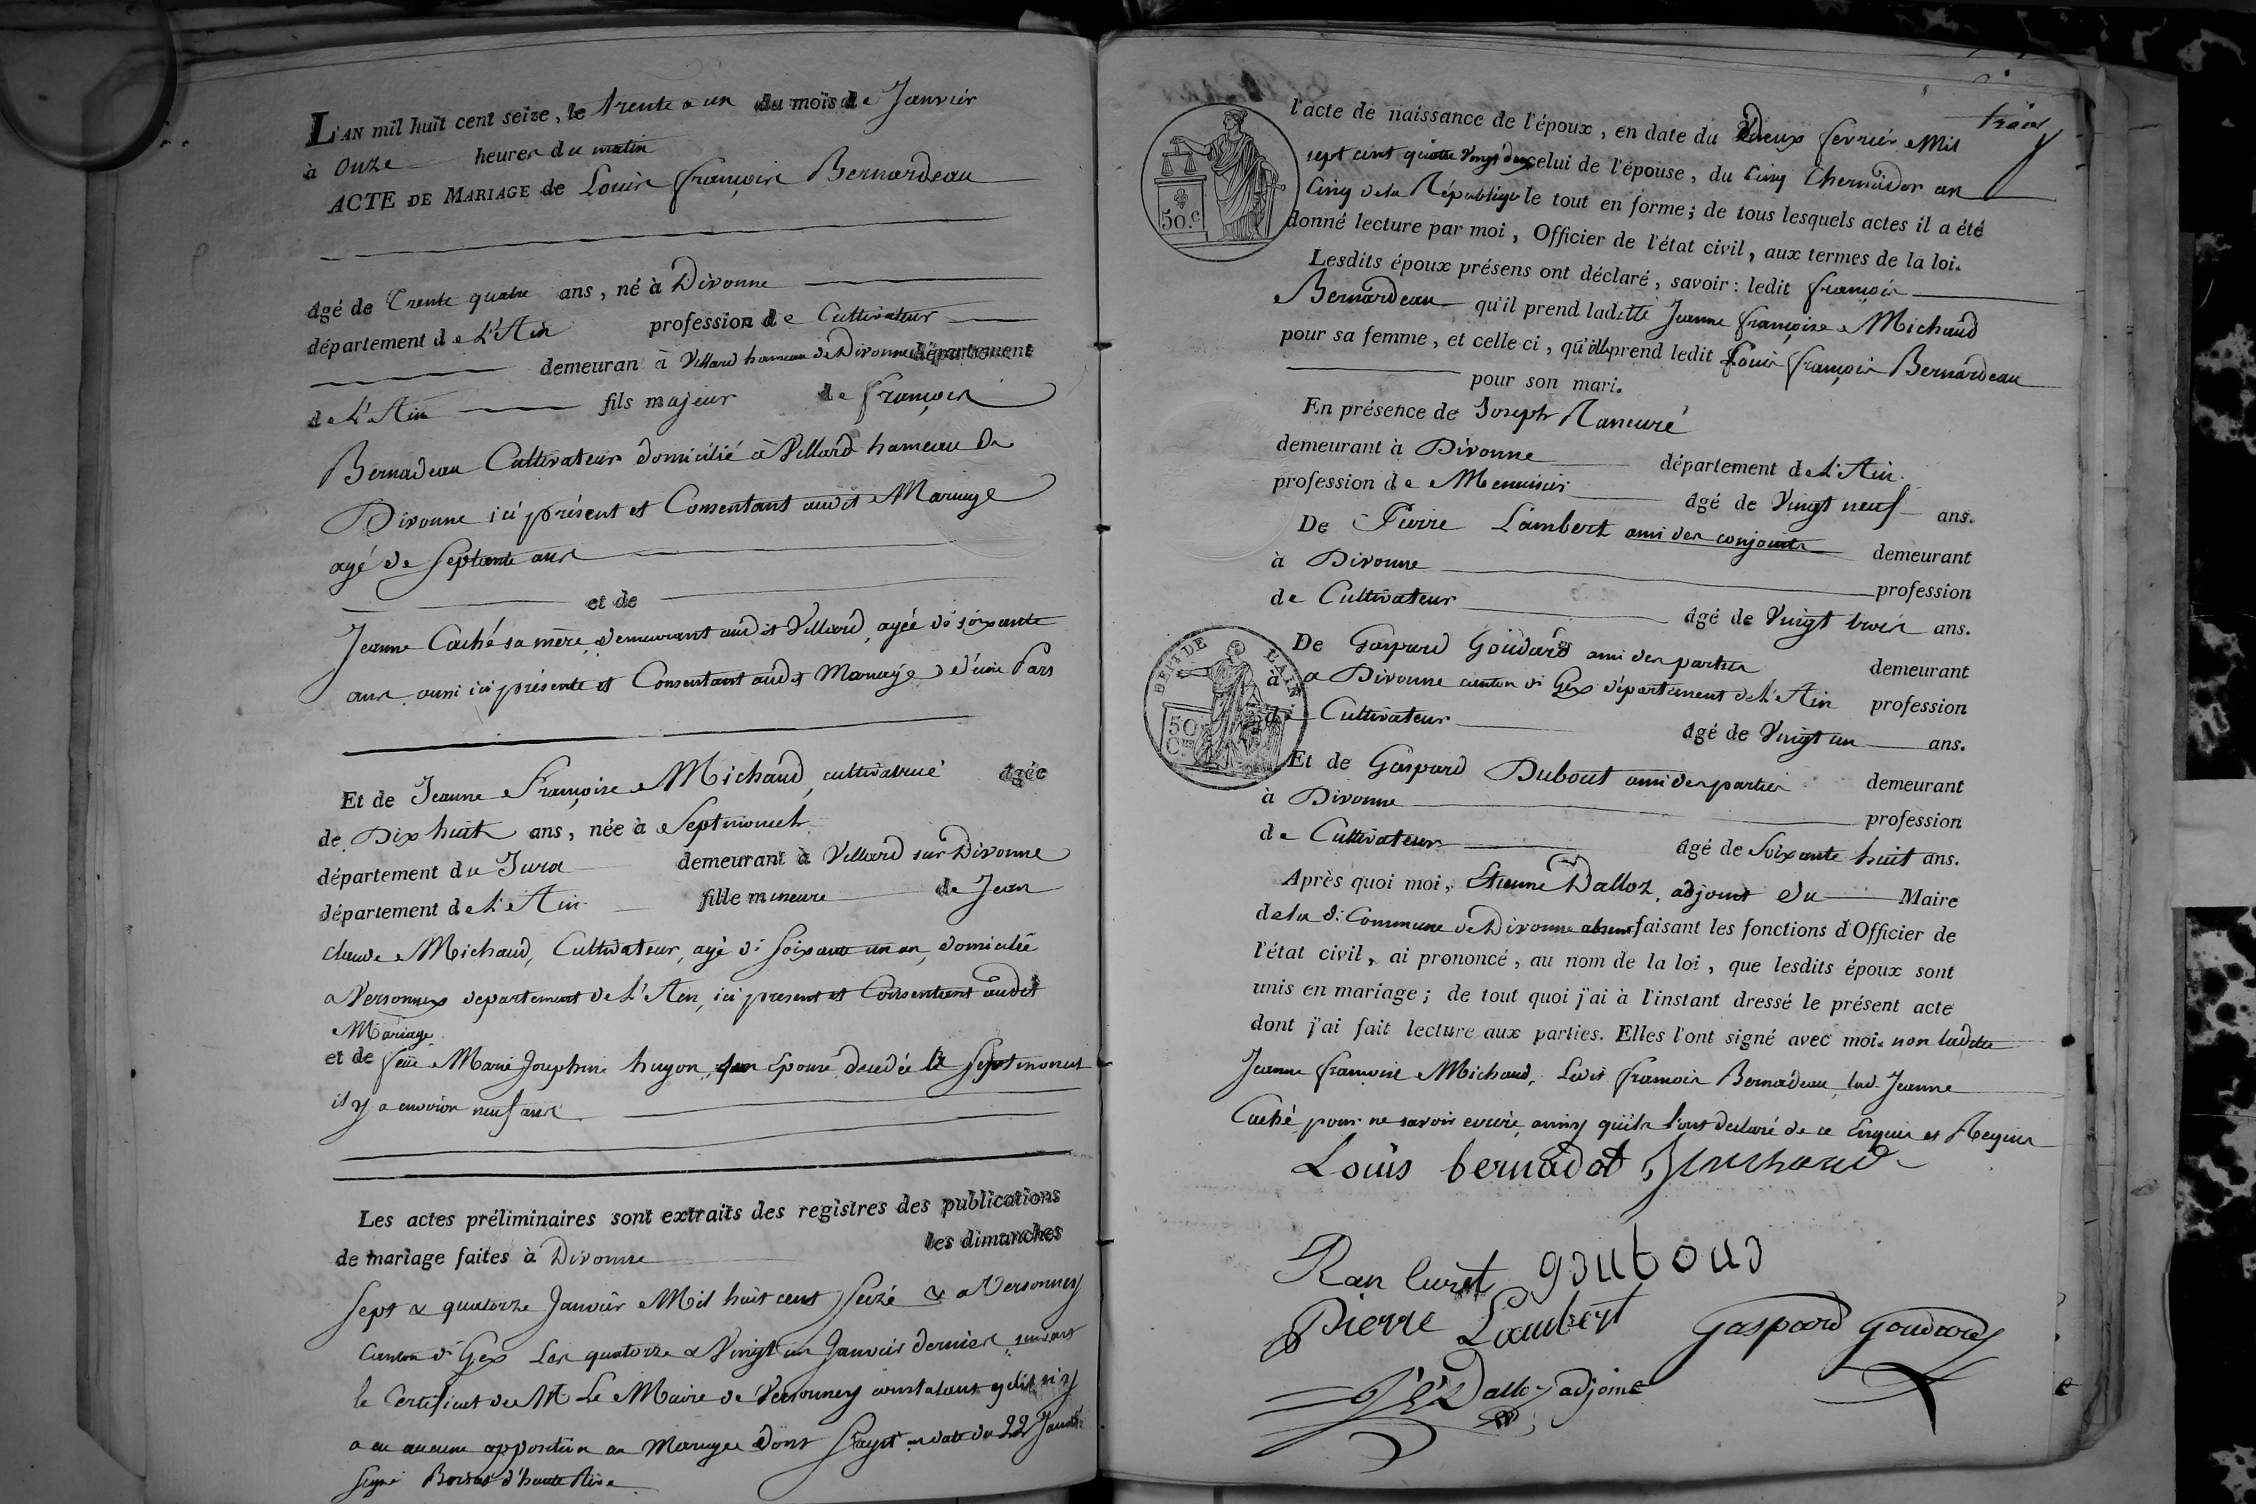 L'AN mil huit cent seize, le trente & un du mois de Janvier
à Onze heures du matin
ACTE DE MARIAGE de Louis françois Bernardeau
âgé de Trente quatre ans, né à Divonne
département de L'Ain profession de Cultivateur
demeuran à Villard hameau de Divonne département
de L'Ain fils majeur de françois
Bernadeau Cultivateur domicilié à Villard hameau de
Divonne ici présent et Consentant audit Mariage
agé de Septante ans
et de
Jeanne Caché sa mère, demeurant audit Villard, agée de soixante
ans aussi ici présente et Consentant audt Mariage d'une Part
Et de Jeanne Françoise Michaud, cultivatrice âgée
de Dix huit ans, née à Septmoncel
département du Jura demeurant à Villard sur Divonne
département de L'Ain fille mineure de Jean
claude Michaud, Cultivateur, agé de soixante un an, domicilié
a Versonnex departement de L'Ain, ici present et Consentant audit
Mariage
et de feüe Marie Josephine hugon, son Epouse décedée à Septmoncel
il y a environ neuf ans
Les actes préliminaires sont extraits des registres des publications
de mariage faites à Divonne les dimanches
Sept & quatorze Janvier Mil huit cent Seize & a Versonnex
Canton de Gex Les quatorze & Vingt un Janvier dernier suivant
le Certificat de M Le Maire de Versonnex constatant qu'il n'y
a eu aucune opposition au Mariage dont s'agit en date du 22 Janvier
signé d'haute Rive
trois
l'acte de naissance de l'époux, en date du Deux fevrier Mil
sept cent quatre Vingt deux celui de l'épouse, du Cinq Thermidor an
Cinq de la République le tout en forme; de tous lesquels actes il a été
donné lecture par moi, Officier de l'état civil, aux termes de la loi.
Lesdits époux présens ont déclaré, savoir: ledit françois
Bernardeau qu'il prend ladette Jeanne françoise Michaud
pour sa femme, et celle ci, qu'elle prend ledit Louis françois Bernardeau
pour son mari.
50.c
En présence de Joseph Ramuré
demeurant à Divonne département de L'Ain
profession de Menuisier âgé de Vingt neuf ans.
De Pierre Lambert ami des conjoints demeurant
à Divonne profession
de Cultivateur âgé de Vingt trois ans.
De Gaspard Goudard ami des parties demeurant
à a Divonne canton de Gex département de L'Ain profession
de Cultivateur âgé de Vingt un ans.
DEPT. DE L'AIN
50
Cmes
Et de Gaspard Dubout ami des parties demeurant
à Divonne profession
de Cultivateur âgé de Soixante huit ans.
Après quoi moi, Etienne Dalloz, adjoint du Maire
de la de Commune de Divonne absent faisant les fonctions d'Officier de
l'état civil, ai prononcé, au nom de la loi, que lesdits époux sont
unis en mariage; de tout quoi j'ai à l'instant dressé le présent acte
dont j'ai fait lecture aux parties. Elles l'ont signé avec moi. non ladite
Jeanne françoise Michaud, Ledit francois Bernadeau, lad. Jeanne
Caché pour ne savoir ecrire, ainsy qu'ils l'ont declaré de ce Enquis et Requis
Louis bernadot J Michaud
Ran Curet gdubout
Pierre Lambert Gaspard goudard
Dalloz adjoint